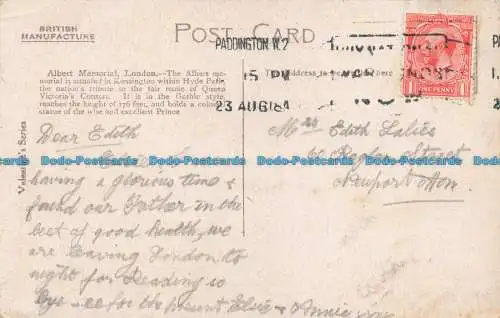 BRITISH
MANUFACTURE
POST CARD
PADDINGTON W.2
15 PM
23 AUG
ONE PENNY
Albert Memorial, London.—The Albert me-
morial is situated in Kensington within Hyde Park,
the nation's tribute to the fair name of Queen
Victoria's Consort. It is in the Gothic style,
reaches the height of 176 feet, and holds a colossal
statue of the wise and excellent Prince
The address to be written here
Valentine's Series
Dear Edith
having a glorious time &
found our Father in the
best of good health, we
are leaving London to
night for Reading so
bye for the present Elsie & Annie
Edith
Street
Newport Mon
Dodo-Postcards Dodo-Postcards Dodo-Postcards Dodo-Postcards